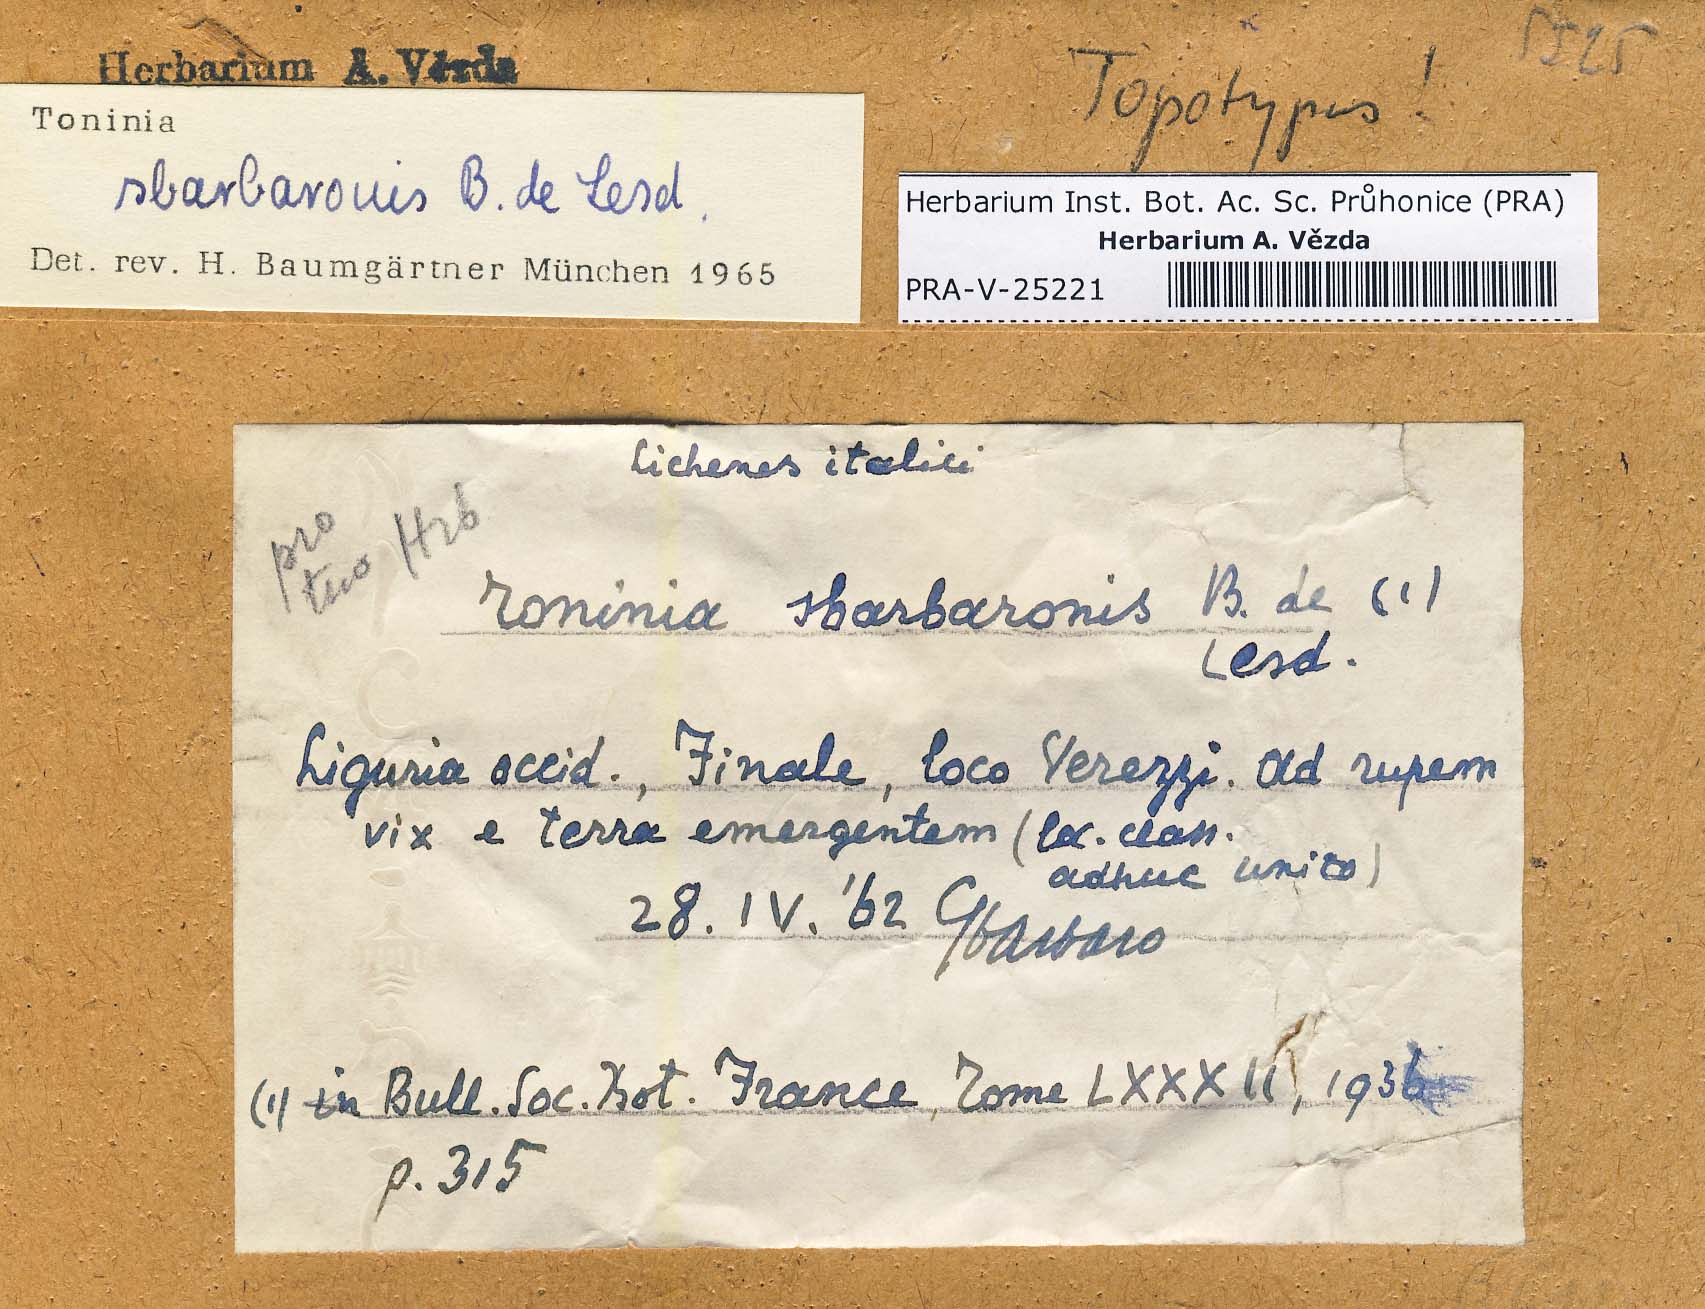 Herbarium A. Vězda
Toninia
sbarbaronis B. de Lesd.
Det. rev. H. Baumgärtner München 1965
Topotypus!
Herbarium Inst. Bot. Ac. Sc. Průhonice (PRA)
Herbarium A. Vězda
PRA-V-25221
Lichenes italici
pro
tuo Hrb
Toninia sbarbaronis B. de (1)
Lesd.
Liguria occid., Finale, loco Verezzi. Ad rupem
vix e terra emergentem (loc. class.
adhuc unico)
28. IV. '62 Sbarbaro
(1) in Bull. Soc. Bot. France, Tome LXXXII, 1936
p. 315